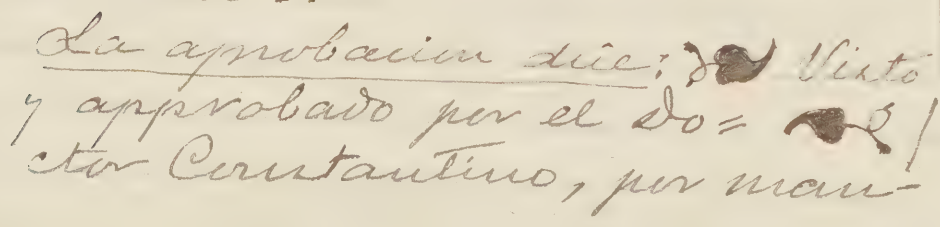 La aprobacion dice: ❧ Visto
y approbado por el Do= ☙ /
ctor Constantino, por man-